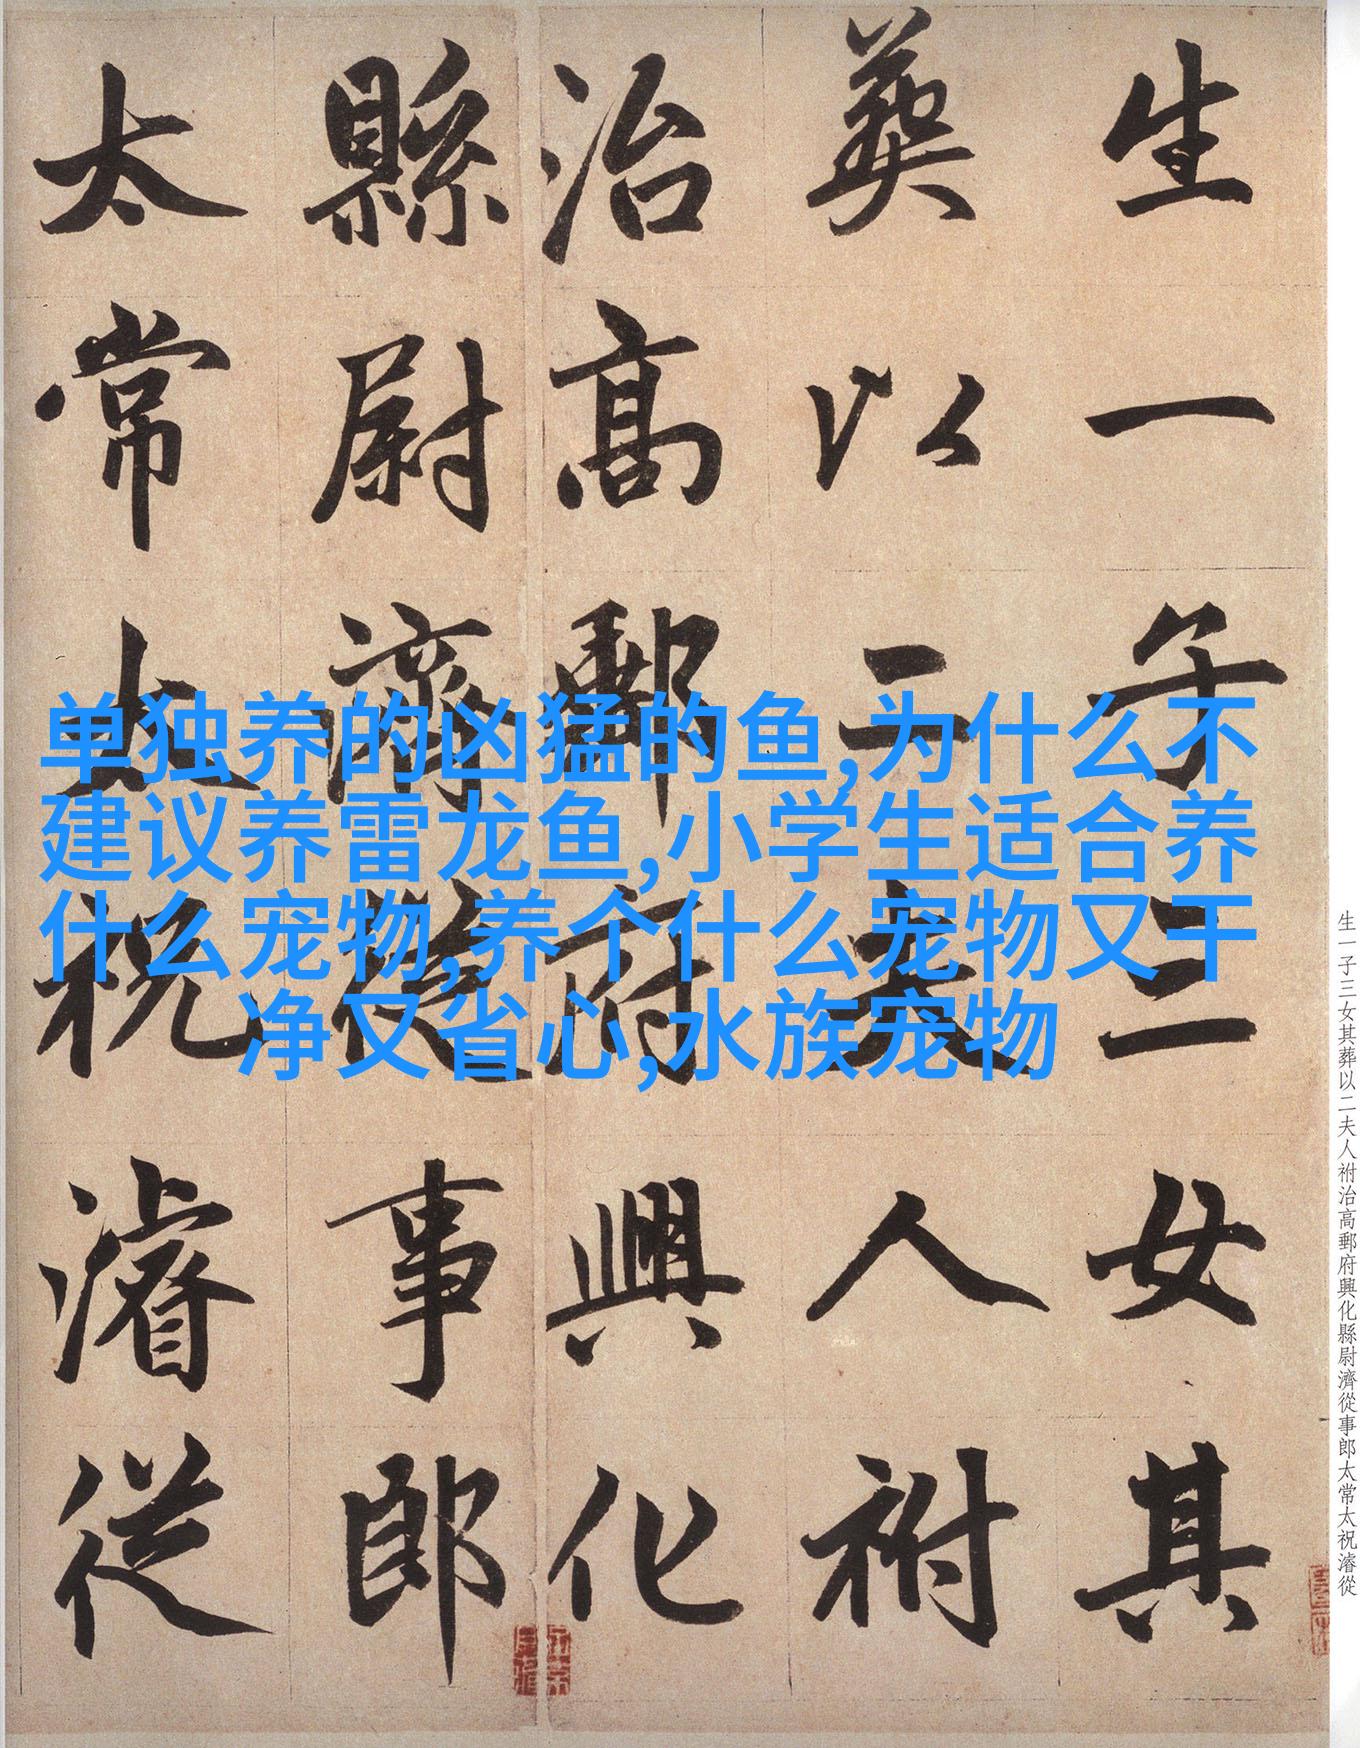 生一子三女其
葬以二夫人祔
治高郵府興化
縣尉濟從事郎
太常太祝濬從
单独养的凶猛的鱼,为什么不
建议养雷龙鱼,小学生适合养
什么宠物,养个什么宠物又干
净又省心,水族宠物
生一子三女其葬以二夫人祔治高郵府興化縣尉濟從事郎太常太祝濬從